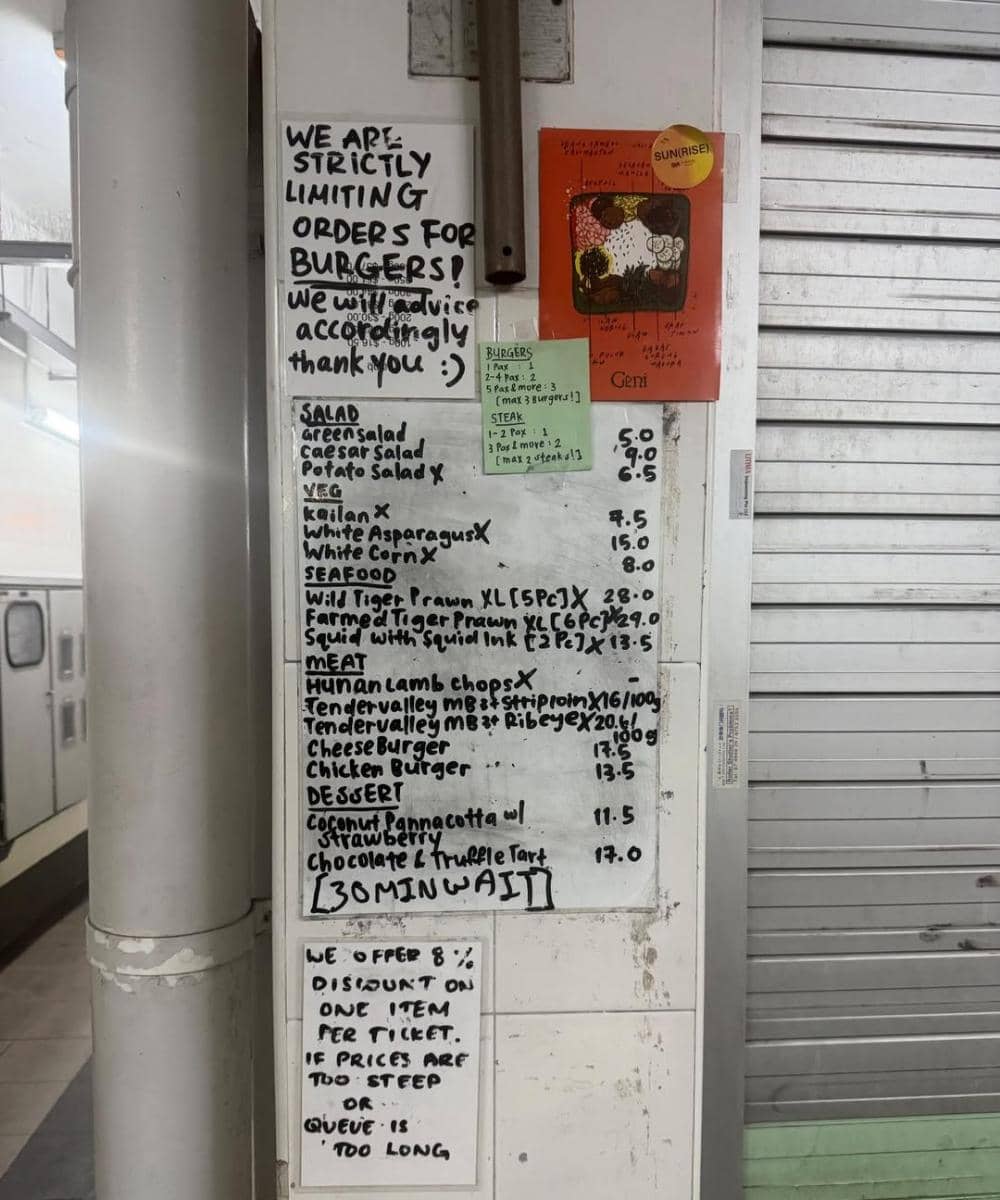 WE ARE
STRICTLY
LIMITING
ORDERS FOR
BURGERS!
We will advice
accordingly
thank you :)
SUN(RISE)
Geni
BURGERS
1 Pax : 1
2-4 Pax : 2
5 Pax & more : 3
[max 3 Burgers!]
STEAK
1-2 Pax : 1
3 Pax & more : 2
[max 2 steaks!]
SALAD
Green salad 5.0
Caesar Salad 9.0
Potato Salad X 6.5
VEG
Kailan X 7.5
White Asparagus X 15.0
White Corn X 8.0
SEAFOOD
Wild Tiger Prawn XL [5Pc] X 28.0
Farmed Tiger Prawn XL [6Pc] X 29.0
Squid with Squid Ink [2Pc] X 13.5
MEAT
Hunan Lamb Chops X -
Tendervalley MB 3+ Striploin X 16/100g
Tendervalley MB 3+ Ribeye X 20.6/
100g
Cheese Burger 17.5
Chicken Burger 13.5
DESSERT
Coconut Pannacotta w/ 11.5
Strawberry
Chocolate & Truffle Tart 17.0
[30 MIN WAIT]
WE OFFER 8%
DISCOUNT ON
ONE ITEM
PER TICKET.
IF PRICES ARE
TOO STEEP
OR
QUEUE IS
TOO LONG